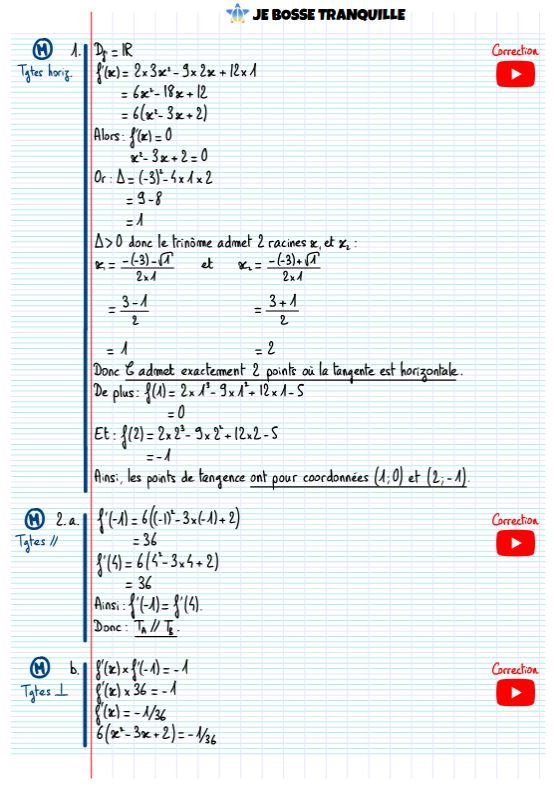 JE BOSSE TRANQUILLE
M 1. D𝒻 = ℝ Correction
Tgtes horiz. f'(x) = 2×3x² - 9×2x + 12×1
= 6x² - 18x + 12
= 6(x² - 3x + 2)
Alors : f'(x) = 0
x² - 3x + 2 = 0
Or : Δ = (-3)² - 4×1×2
= 9 - 8
= 1
Δ > 0 donc le trinôme admet 2 racines x₁ et x₂ :
x₁ = (-(-3) - √1)/(2×1) et x₂ = (-(-3) + √1)/(2×1)
= (3 - 1)/2 = (3 + 1)/2
= 1 = 2
Donc C admet exactement 2 points où la tangente est horizontale.
De plus : f(1) = 2×1³ - 9×1² + 12×1 - 5
= 0
Et : f(2) = 2×2³ - 9×2² + 12×2 - 5
= -1
Ainsi, les points de tangence ont pour coordonnées (1 ; 0) et (2 ; -1).
M 2. a. f'(-1) = 6((-1)² - 3×(-1) + 2) Correction
Tgtes // = 36
f'(4) = 6(4² - 3×4 + 2)
= 36
Ainsi : f'(-1) = f'(4).
Donc : T_A // T_B.
M b. f'(x) × f'(-1) = -1 Correction
Tgtes ⊥ f'(x) × 36 = -1
f'(x) = -1/36
6(x² - 3x + 2) = -1/36